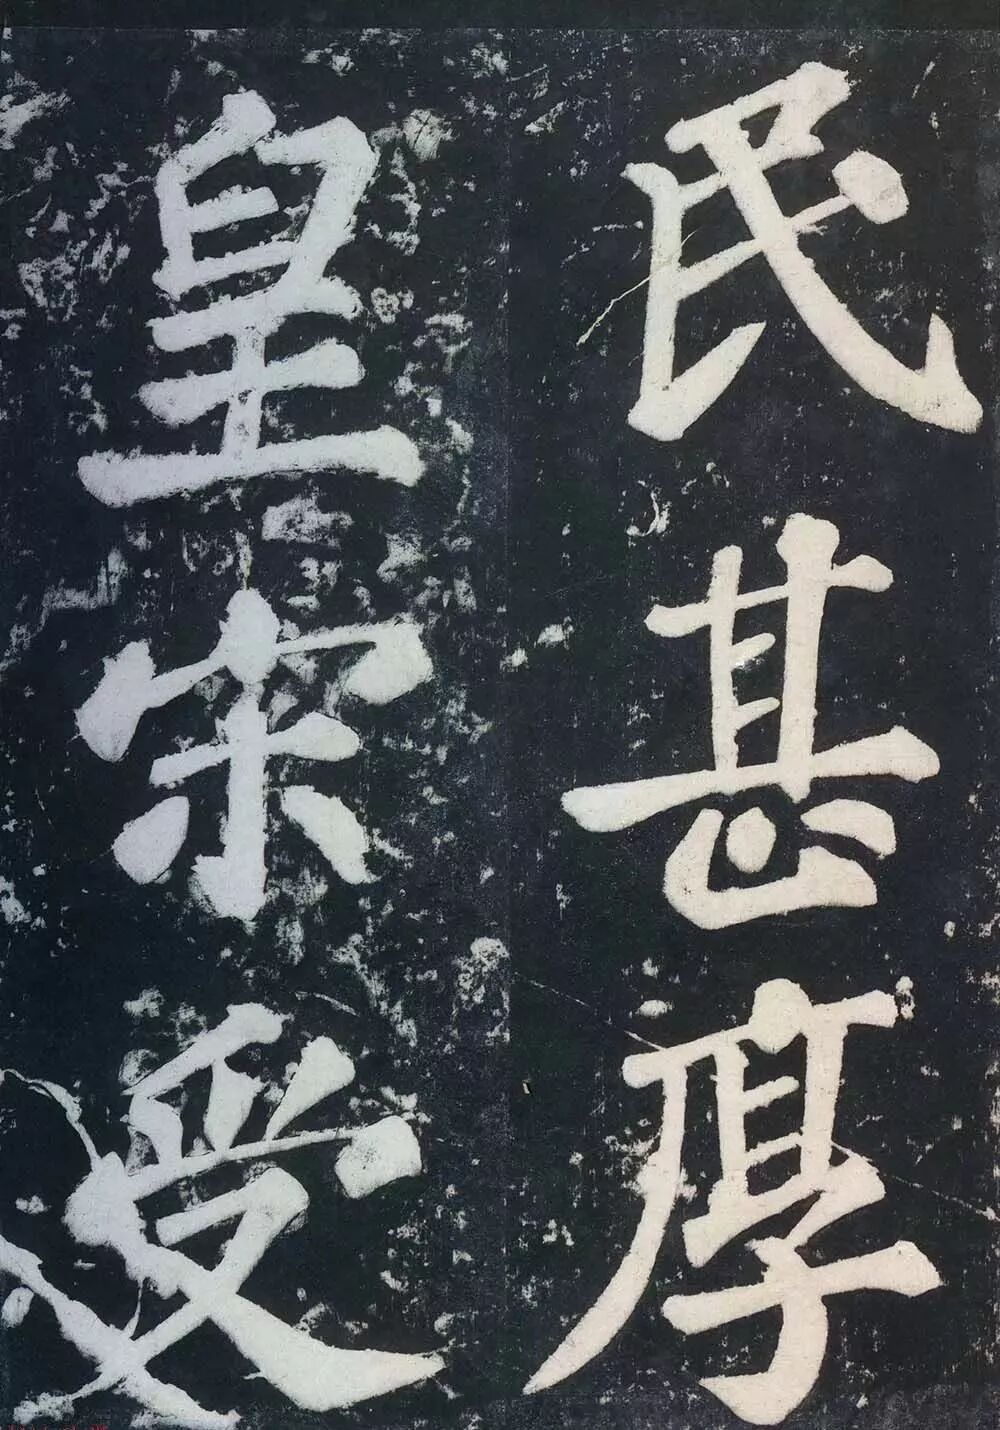 民甚厚
皇宋受